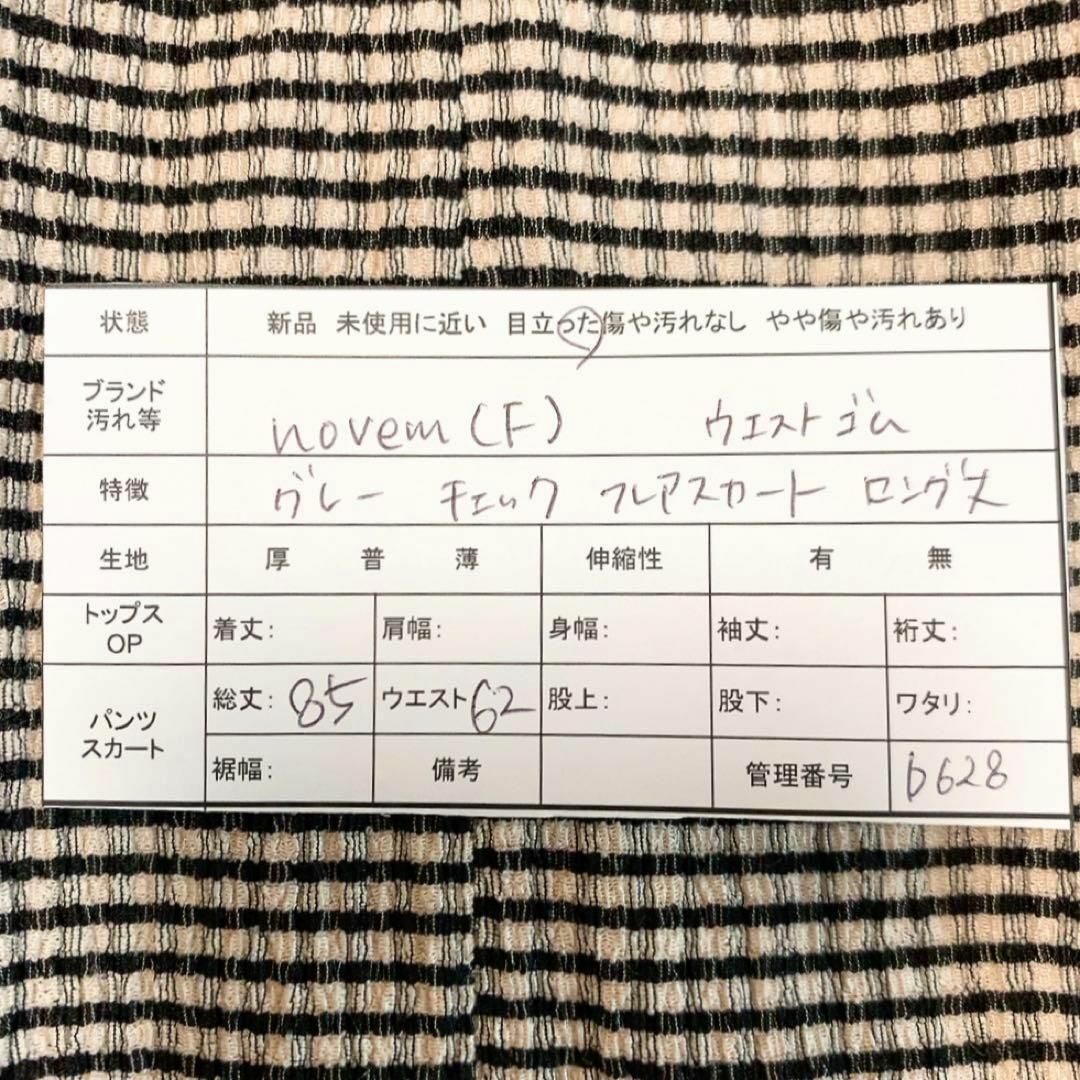 状態 新品 未使用に近い 目立った傷や汚れなし やや傷や汚れあり
ブランド
汚れ等
novem (F) ウエストゴム
特徴 グレー チェック フレアスカート ロング丈
生地 厚 普 薄 伸縮性 有 無
トップス
OP
着丈: 肩幅: 身幅: 袖丈: 裄丈:
パンツ
スカート
総丈: 85 ウエスト 62 股上: 股下: ワタリ:
裾幅: 備考 管理番号 b628